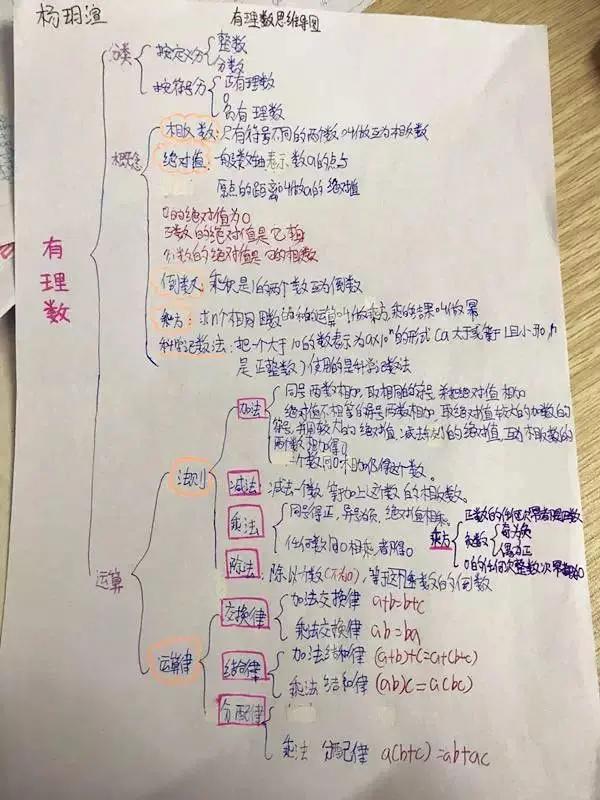 杨玥渲
有理数思维导图
有理数
分类
按定义分
整数
分数
按符号分
正有理数
0
负有理数
概念
相反数:只有符号不同的两个数叫做互为相反数
绝对值:一般数轴表示数a的点与
原点的距离叫做a的绝对值
0的绝对值为0
正数的绝对值是它
负数的绝对值是的相反数
倒数:乘积是1的两个数互为倒数
乘方:求n个相同因数的积的运算叫做乘方,乘的结果叫做幂
科学记数法:把一个大于10的数表示为a×10ⁿ的形式(a大于或等于1且小于10,n
是正整数)使用的是科学记数法
运算
法则
加法
同号两数相加,取相同的符号,并把绝对值相加
绝对值不相等的异号两数相加,取绝对值较大的加数的
符号,并用较大的绝对值减去较小的绝对值,互为相反数的
两个数相加得0
一个数同0相加仍得这个数。
减法:减去一个数,等于加上这个数的相反数。
乘法
同号得正,异号为负,绝对值相乘。
任何数同0相乘,都得0
乘方
正数的任何次幂都是正数
负数
奇为负
偶为正
0的任何次整数次幂都为0
除法:除以一个数(不为0),等于乘数的倒数
运算律
交换律
加法交换律 a+b=b+c
乘法交换律 ab=ba
结合律
加法结合律 (a+b)+c=a+(b+c)
乘法结合律 (ab)c=a(bc)
分配律
乘法 分配律 a(b+c)=ab+ac